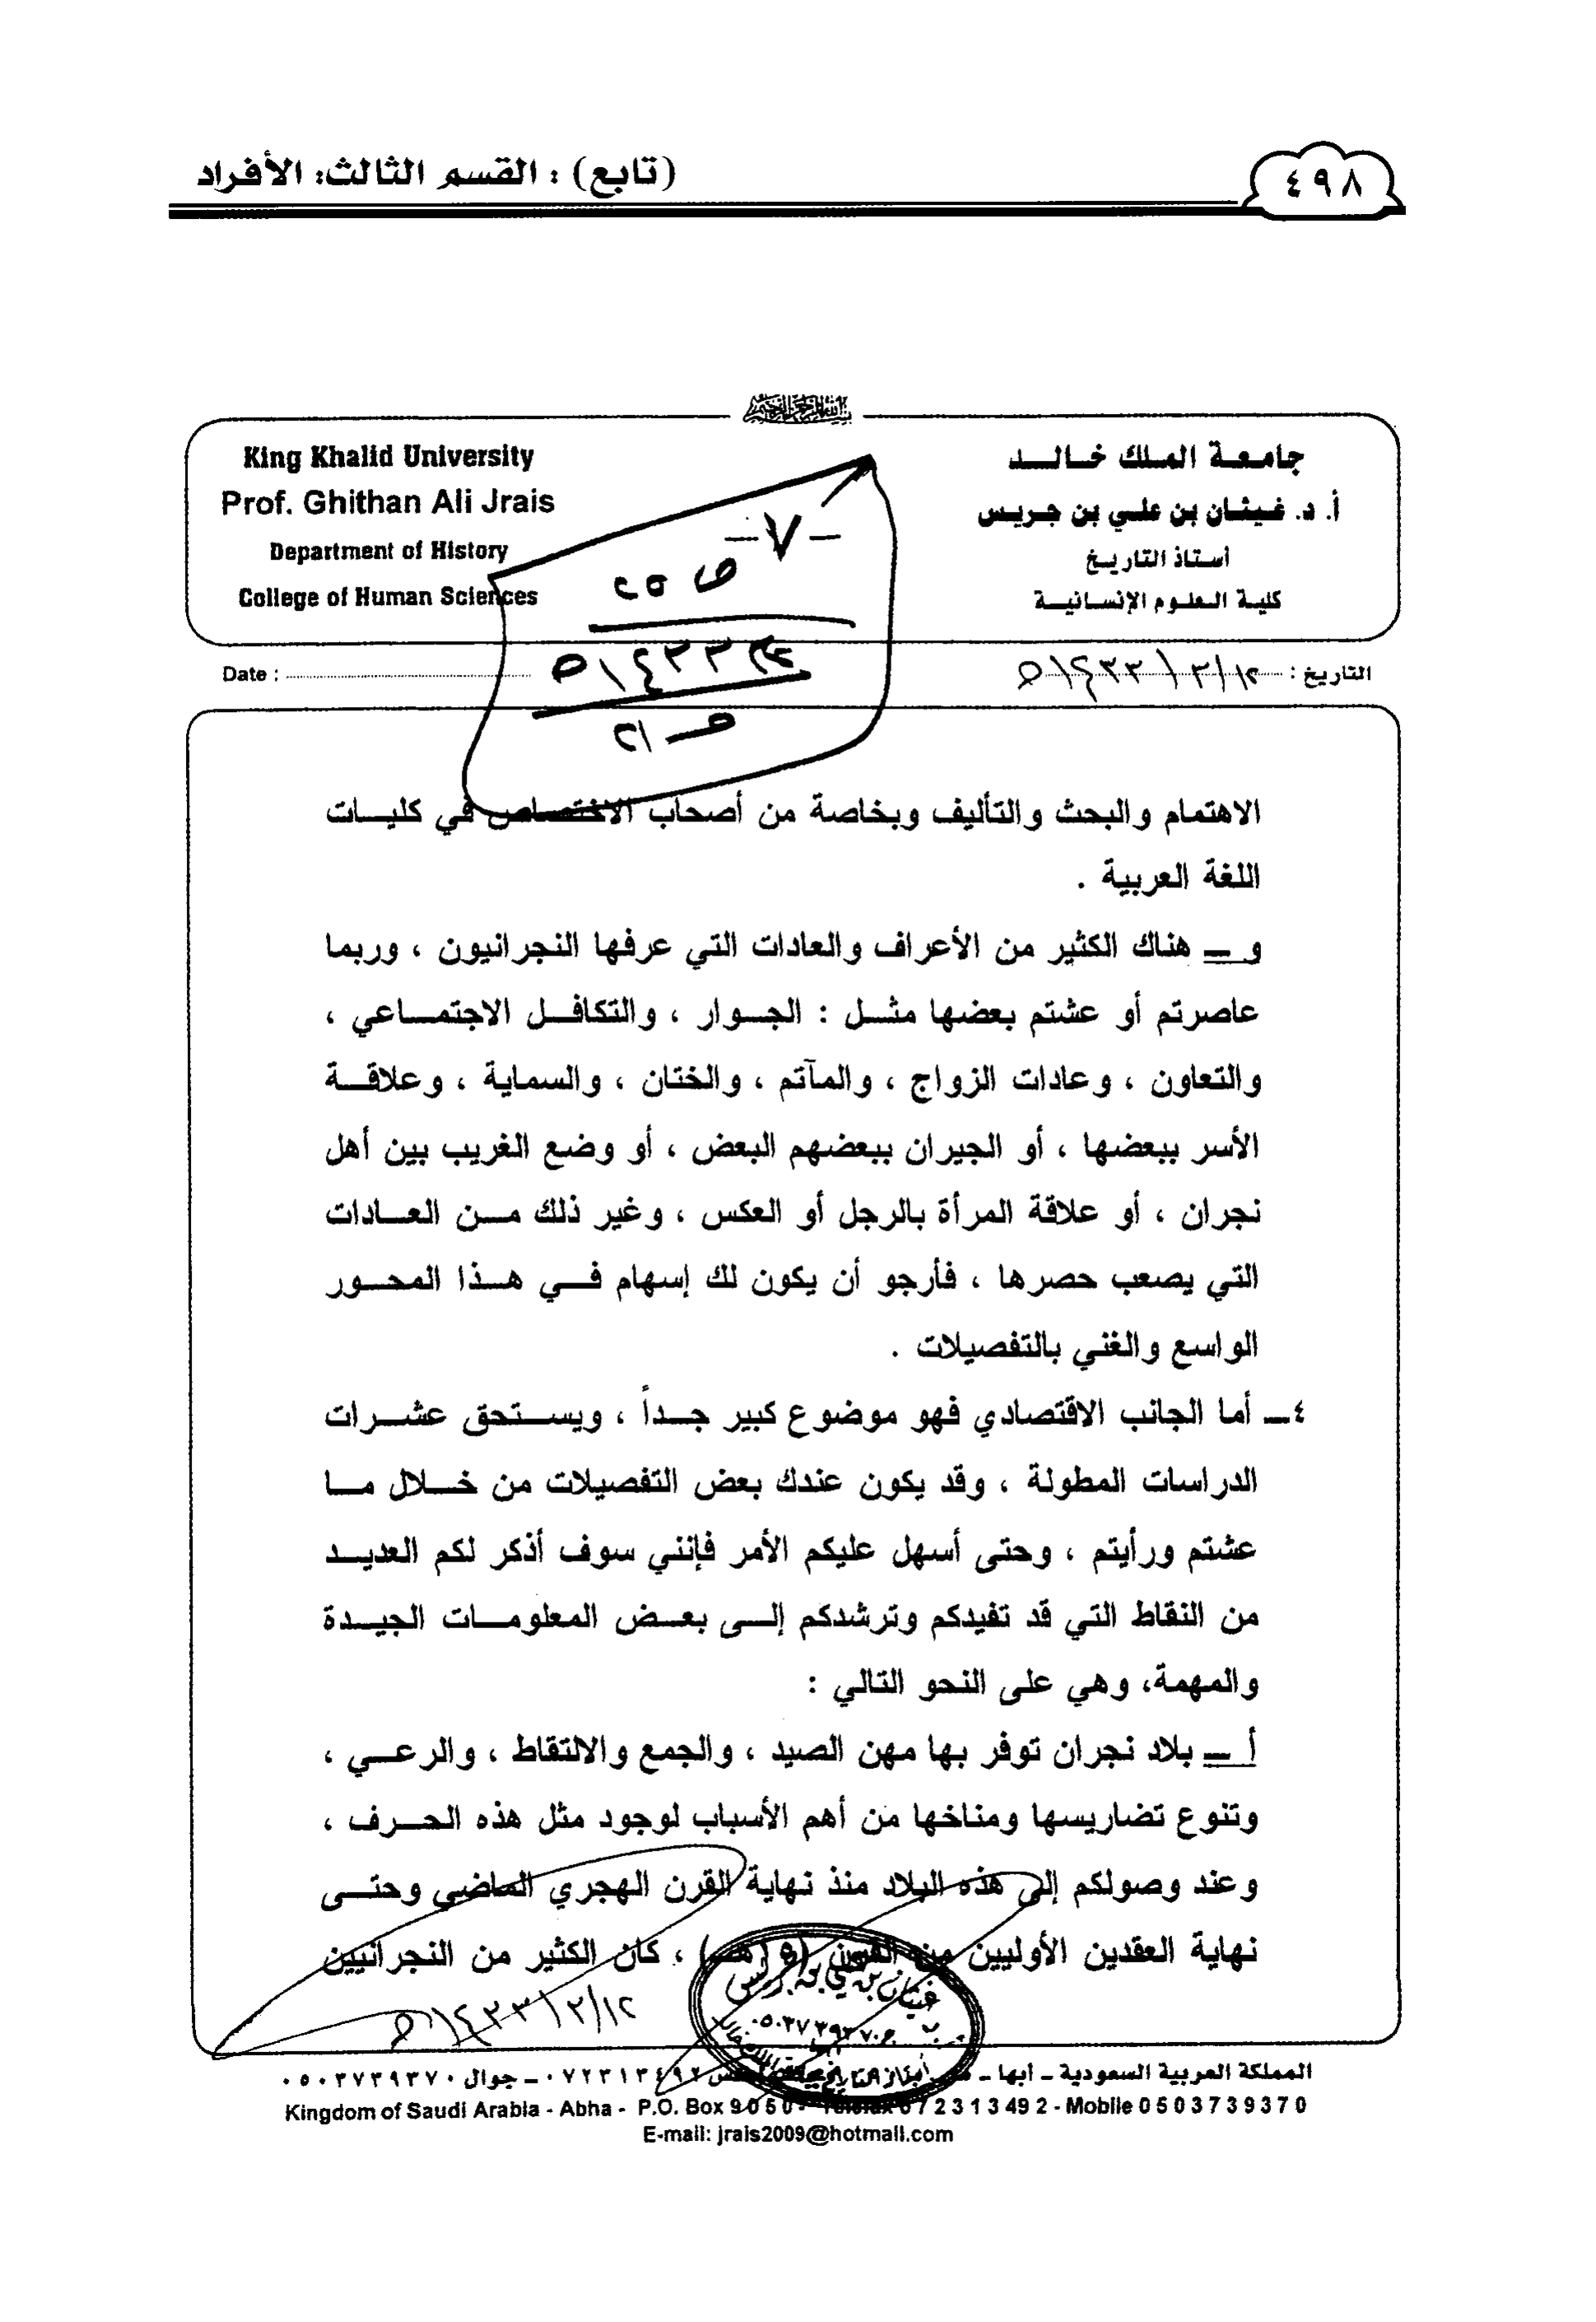 ٤٩٨
(تابع) : القسم الثالث: الأفراد
بسم الله الرحمن الرحيم
جامعة الملك خالد
أ. د. غيثان بن علي بن جريس
أستاذ التاريخ
كلية العلوم الإنسانية
King Khalid University
Prof. Ghithan Ali Jrais
Department of History
College of Human Sciences
-٧-
التاريخ : ١٢/ ٣/ ١٤٣٣هـ
Date :
الاهتمام والبحث والتأليف وبخاصة من أصحاب الاختصاص في كليات
اللغة العربية .
و – هناك الكثير من الأعراف والعادات التي عرفها النجرانيون ، وربما
عاصرتم أو عشتم بعضها مثل : الجوار ، والتكافل الاجتماعي ،
والتعاون ، وعادات الزواج ، والمآتم ، والختان ، والسماية ، وعلاقة
الأسر ببعضها ، أو الجيران ببعضهم البعض ، أو وضع الغريب بين أهل
نجران ، أو علاقة المرأة بالرجل أو العكس ، وغير ذلك من العادات
التي يصعب حصرها ، فأرجو أن يكون لك إسهام في هذا المحور
الواسع والغني بالتفصيلات .
٤– أما الجانب الاقتصادي فهو موضوع كبير جداً ، ويستحق عشرات
الدراسات المطولة ، وقد يكون عندك بعض التفصيلات من خلال ما
عشتم ورأيتم ، وحتى أسهل عليكم الأمر فإنني سوف أذكر لكم العديد
من النقاط التي قد تفيدكم وترشدكم إلى بعض المعلومات الجيدة
والمهمة، وهي على النحو التالي :
أ – بلاد نجران توفر بها مهن الصيد ، والجمع والالتقاط ، والرعي ،
وتنوع تضاريسها ومناخها من أهم الأسباب لوجود مثل هذه الحرف ،
وعند وصولكم إلى هذه البلاد منذ نهاية القرن الهجري الماضي وحتى
نهاية العقدين الأوليين من القرن (١٥هـ) ، كان الكثير من النجرانيين
المملكة العربية السعودية – أبها – ٠٧٢٣١٣٤٩٢ – جوال ٠٥٠٣٧٣٩٣٧٠
Kingdom of Saudi Arabia - Abha - P.O. Box 9050 - Telefax 072313492 - Mobile 0503739370
E-mail: jrais2009@hotmail.com